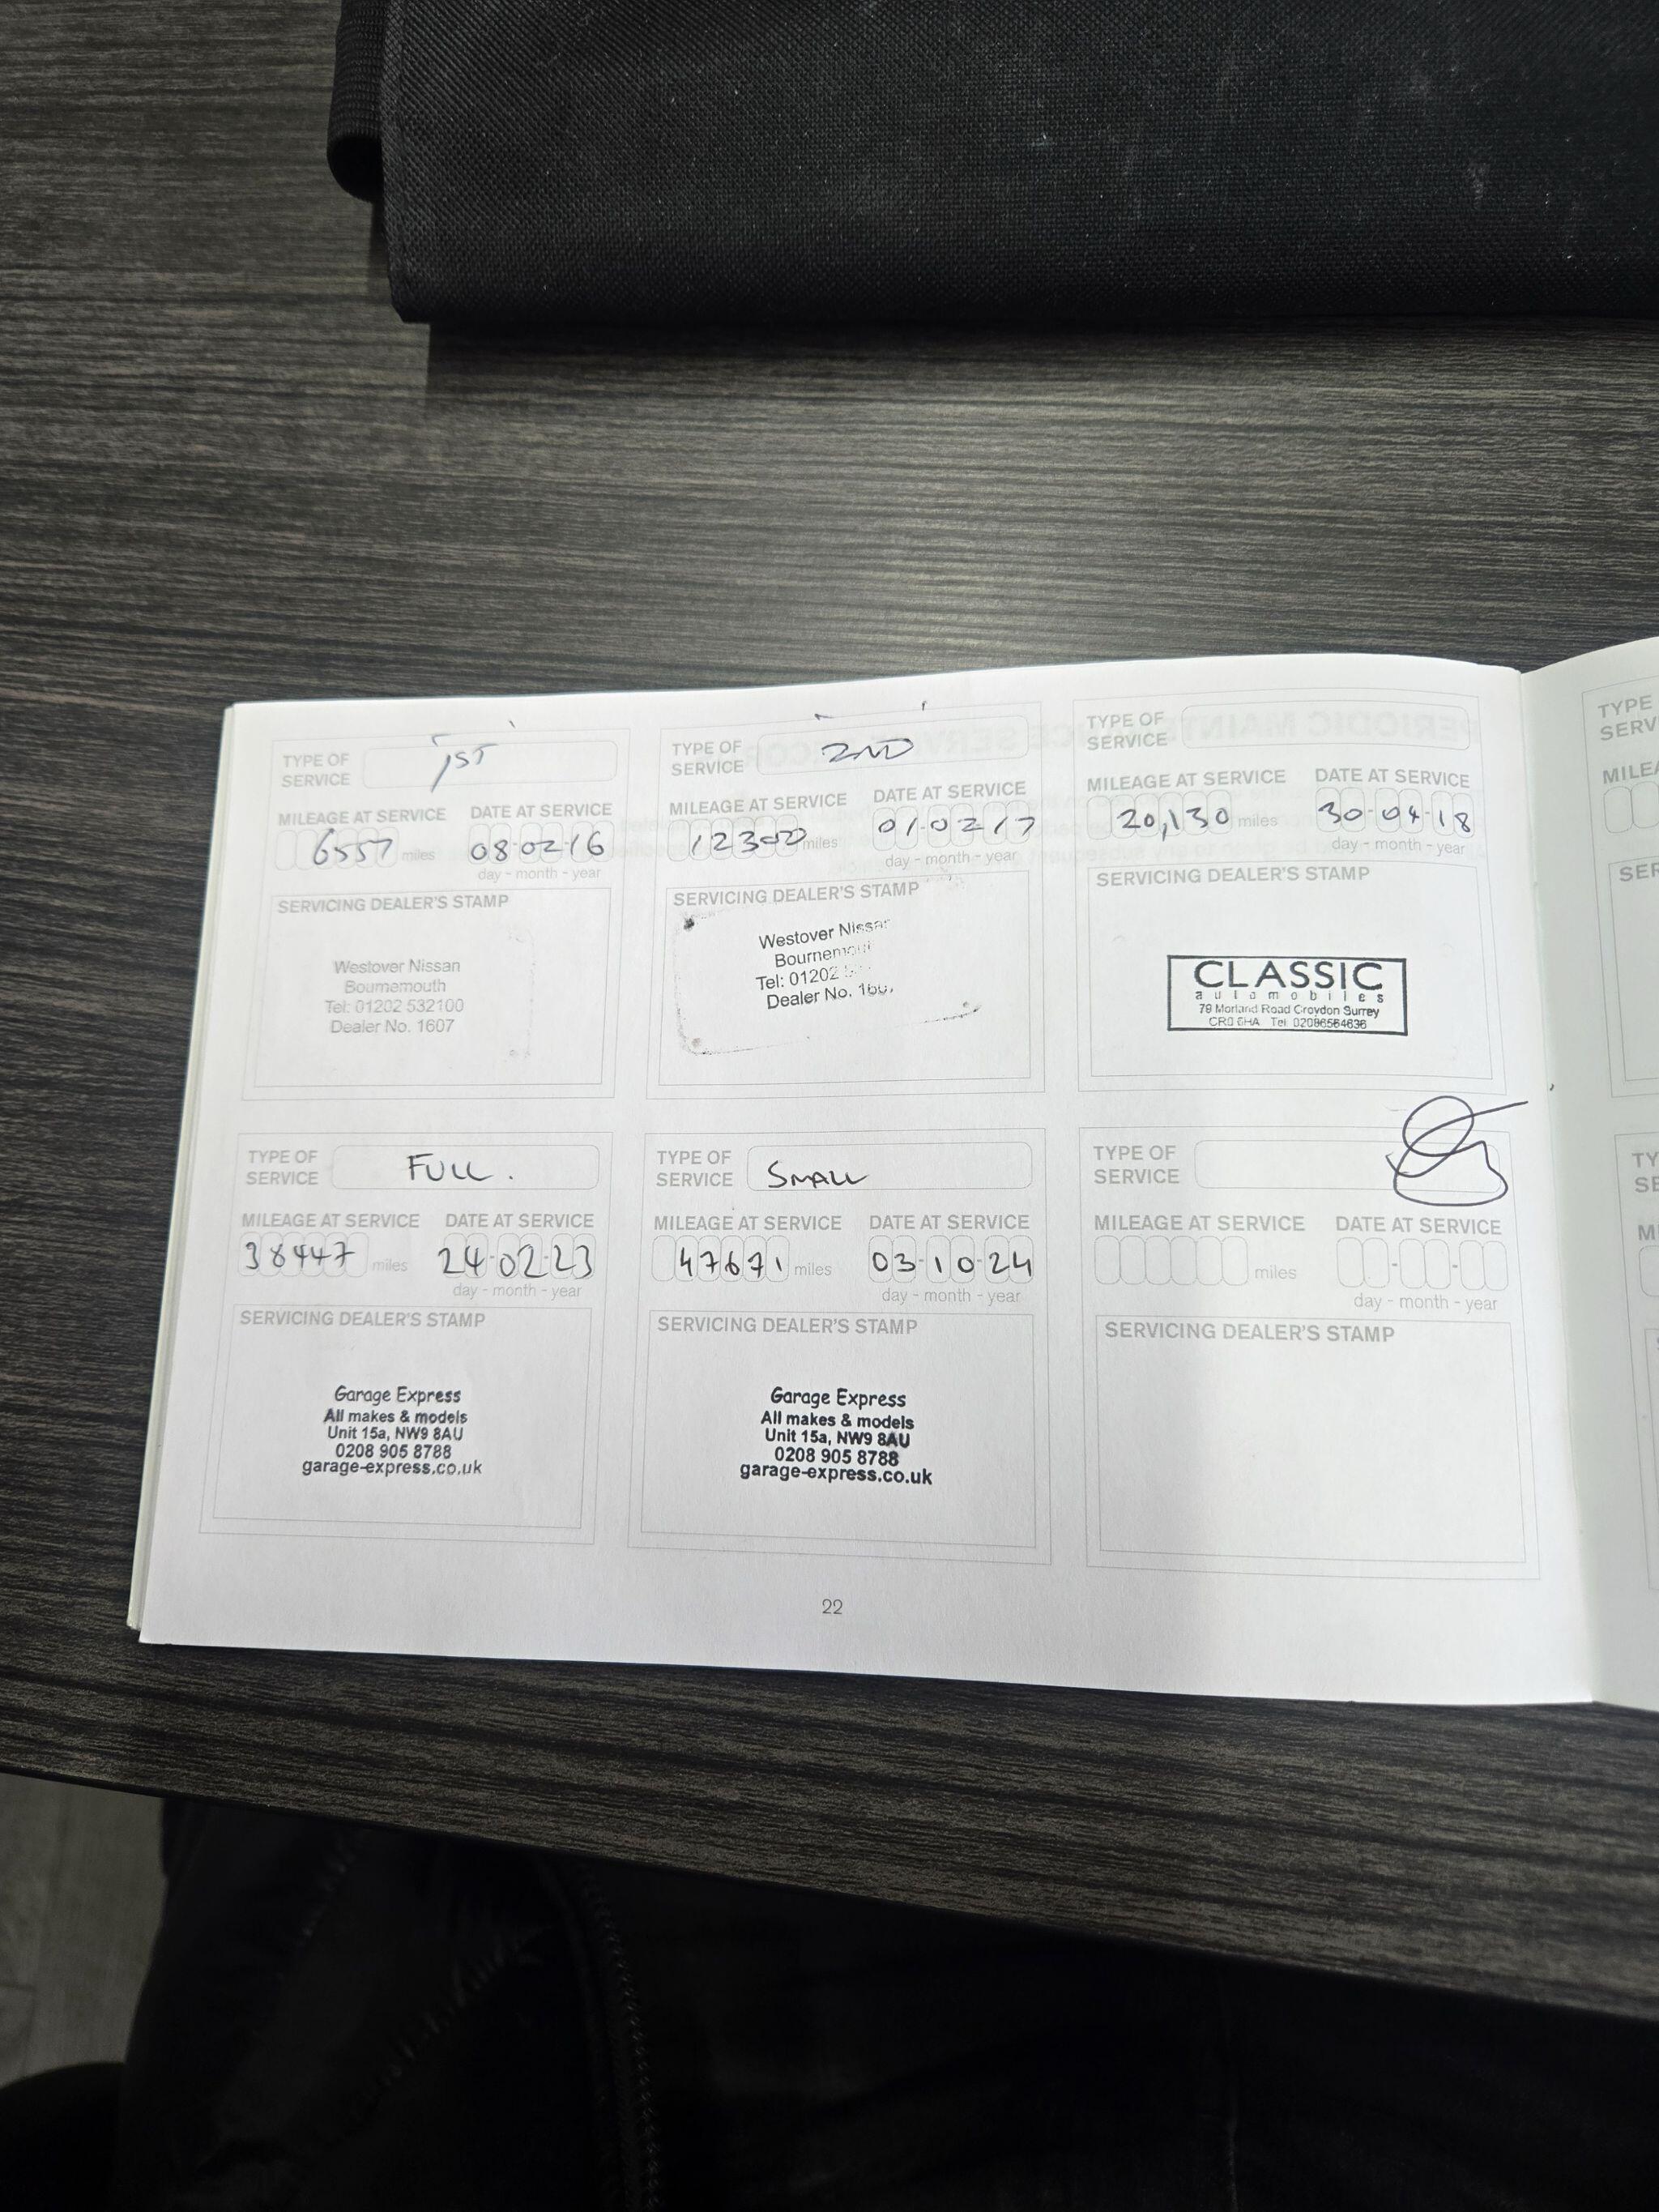 TYPE OF SERVICE 1ST
MILEAGE AT SERVICE DATE AT SERVICE
6557 miles 08-02-16
day - month - year
SERVICING DEALER'S STAMP
Westover Nissan
Bournemouth
Tel: 01202 532100
Dealer No. 1607
TYPE OF SERVICE 2ND
MILEAGE AT SERVICE DATE AT SERVICE
12300 miles 01-02-17
day - month - year
SERVICING DEALER'S STAMP
Westover Nissan
Bournemouth
Tel: 01202
Dealer No.
TYPE OF SERVICE
MILEAGE AT SERVICE DATE AT SERVICE
20,130 miles 30-04-18
day - month - year
SERVICING DEALER'S STAMP
CLASSIC
automobiles
79 Morland Road Croydon Surrey
CR0 6HA Tel: 02086564636
TYPE OF SERVICE FULL.
MILEAGE AT SERVICE DATE AT SERVICE
38447 miles 24-02-23
day - month - year
SERVICING DEALER'S STAMP
Garage Express
All makes & models
Unit 15a, NW9 8AU
0208 905 8788
garage-express.co.uk
TYPE OF SERVICE SMALL
MILEAGE AT SERVICE DATE AT SERVICE
47671 miles 03-10-24
day - month - year
SERVICING DEALER'S STAMP
Garage Express
All makes & models
Unit 15a, NW9 8AU
0208 905 8788
garage-express.co.uk
TYPE OF SERVICE
MILEAGE AT SERVICE DATE AT SERVICE
miles
day - month - year
SERVICING DEALER'S STAMP
22
TYPE
SERV
MILEA
SER
TY
SE
M